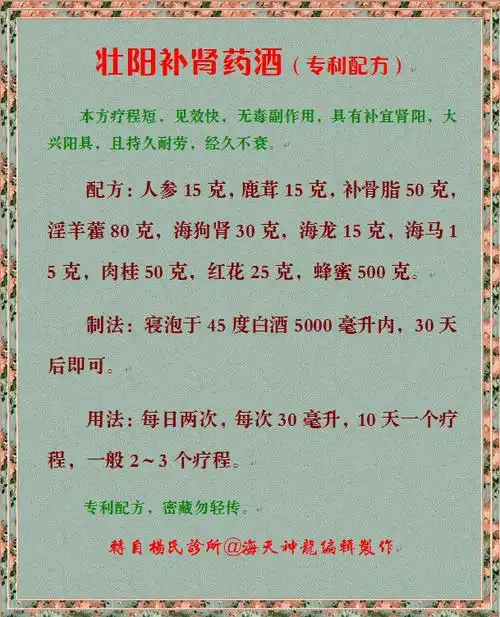 壮阳补肾药酒（专利配方）
本方疗程短，见效快，无毒副作用，具有补宜肾阳，大
兴阳具，且持久耐劳，经久不衰。
配方：人参 15 克，鹿茸 15 克，补骨脂 50 克，
淫羊藿 80 克，海狗肾 30 克，海龙 15 克，海马 1
5 克，肉桂 50 克，红花 25 克，蜂蜜 500 克。
制法：寝泡于 45 度白酒 5000 毫升内，30 天
后即可。
用法：每日两次，每次 30 毫升，10 天一个疗
程，一般 2～3 个疗程。
专利配方，密藏勿轻传。
轉自楊氏診所@海天神龍编輯製作